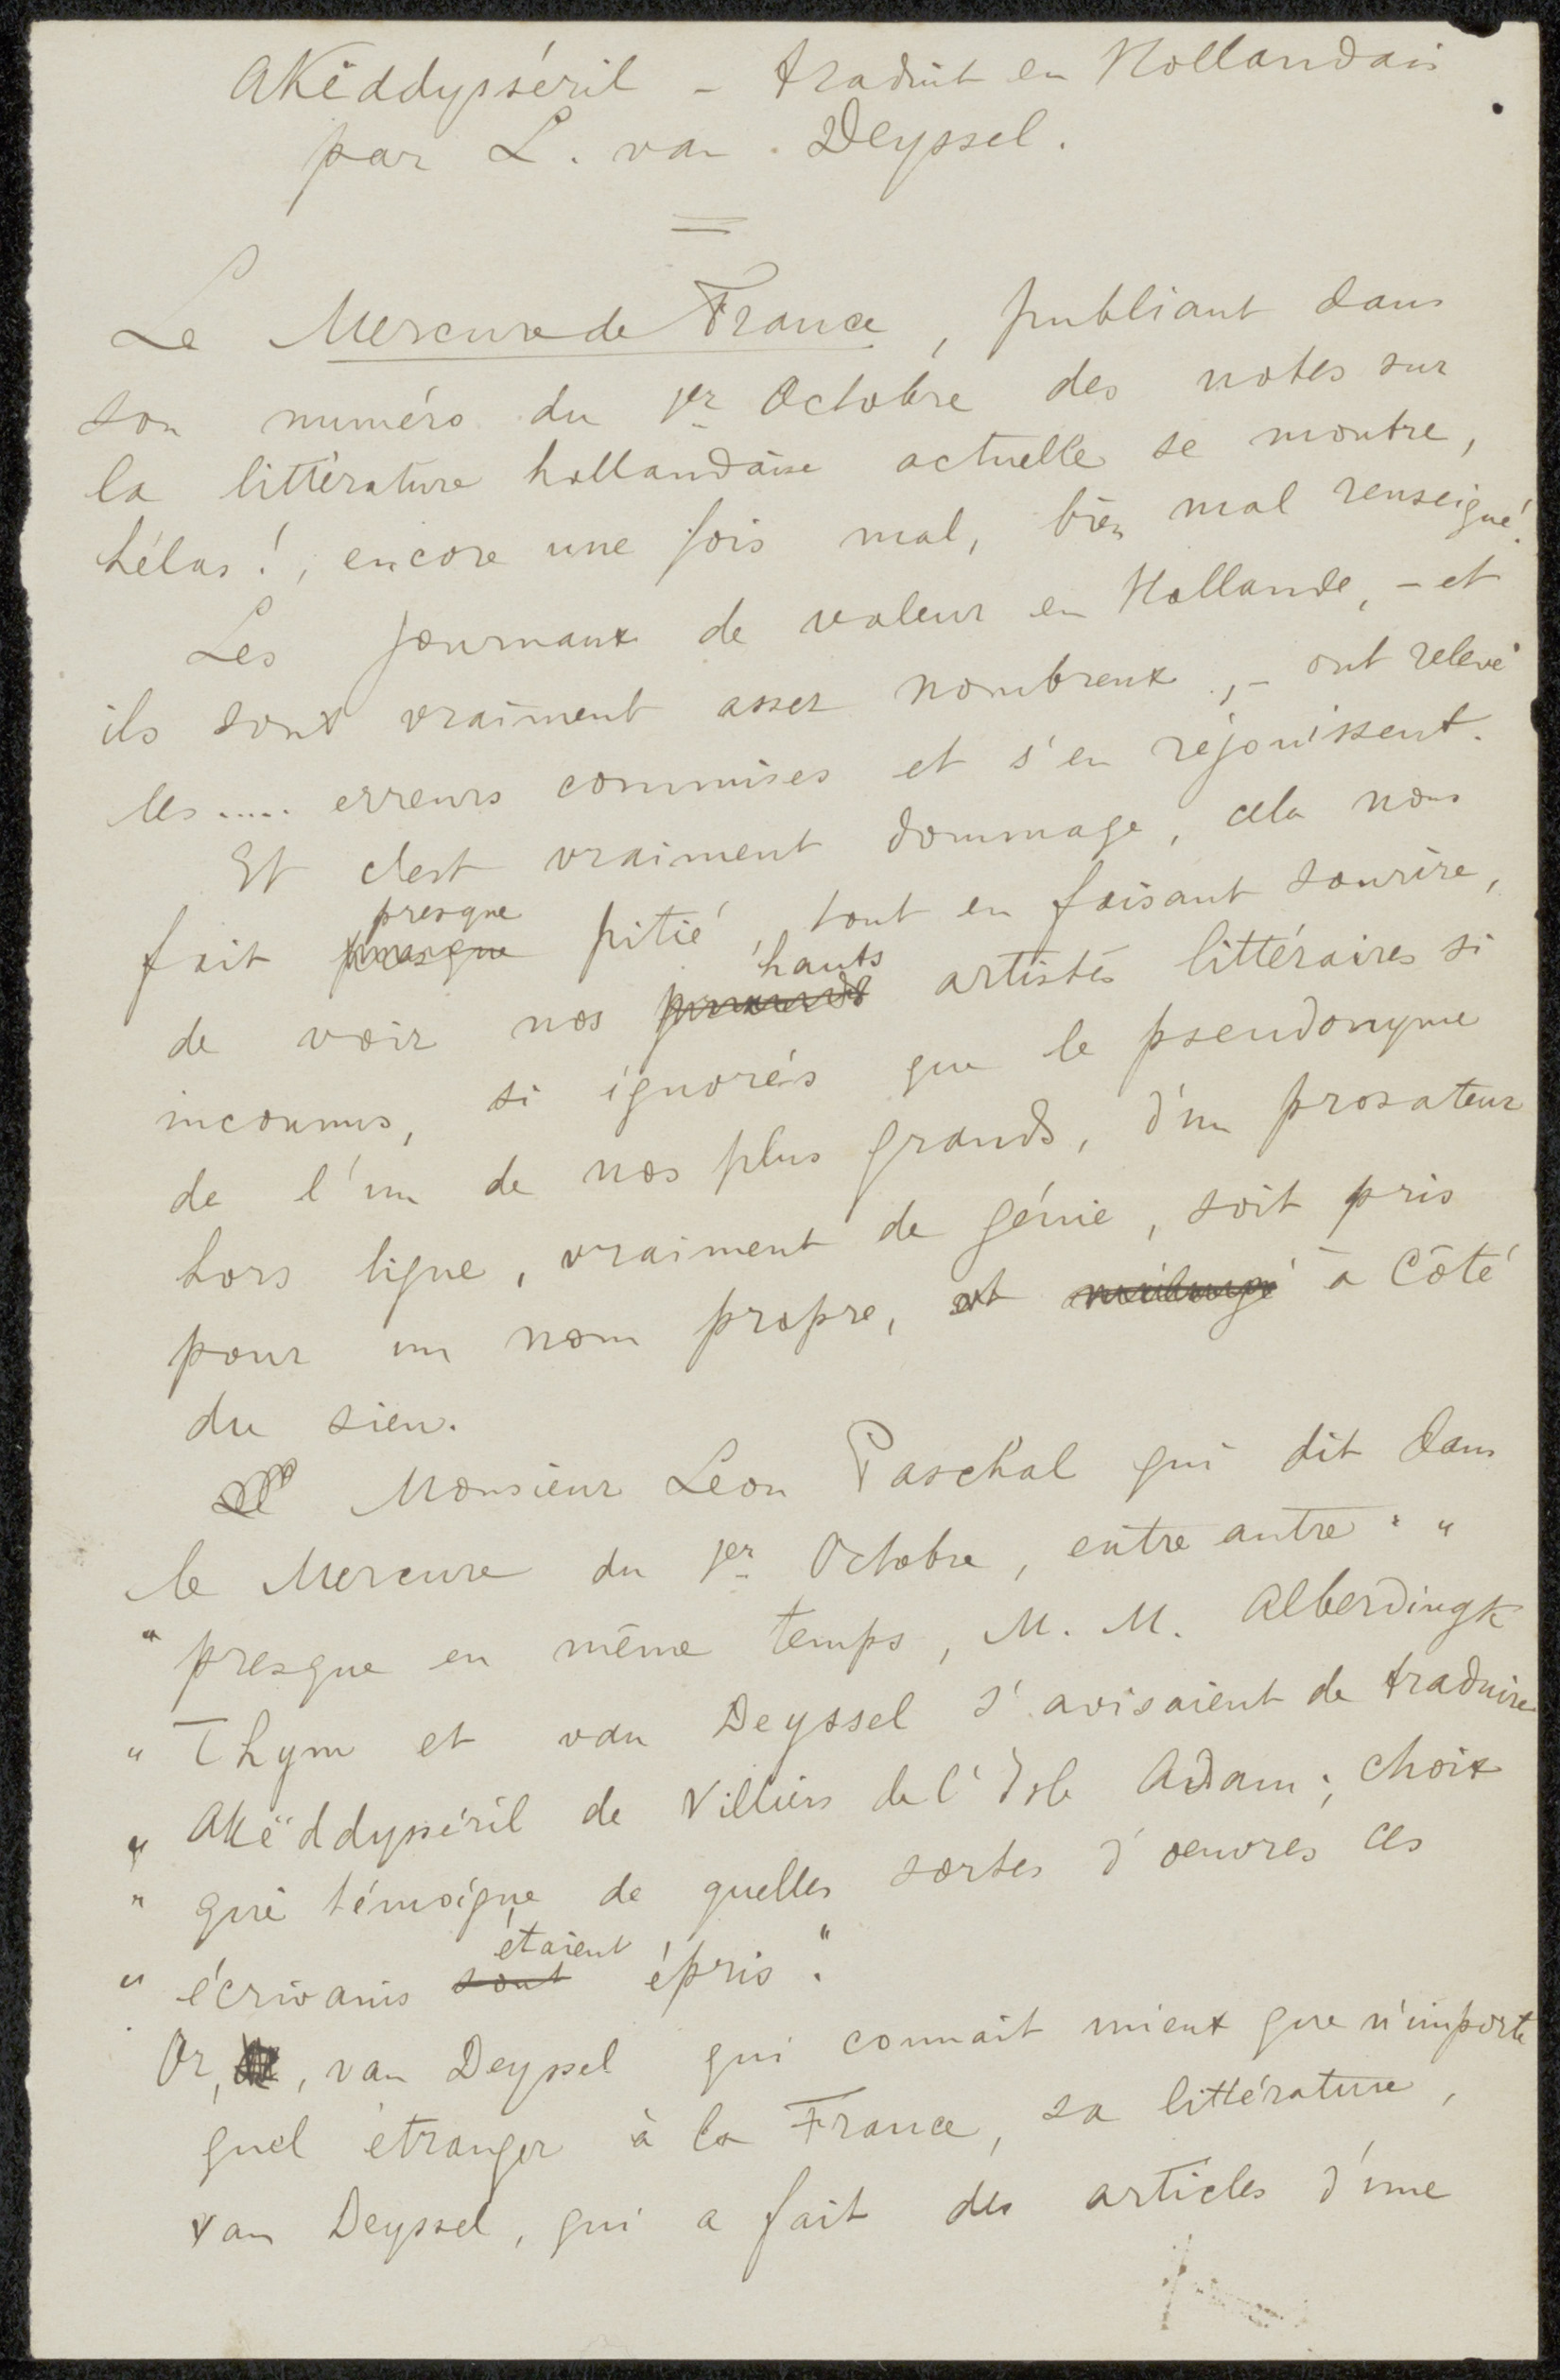 Akëddysséril – traduit en Hollandais
par L. van Deyssel.
Le Mercure de France, publiant dans
son numéro du 1er Octobre des notes sur
la littérature hollandaise actuelle se montre,
hélas!, encore une fois mal, bien mal renseigné.
Les journaux de valeur en Hollande, – et
ils sont vraiment assez nombreux, – ont relevé
les ..... erreurs commises et s'en réjouissent.
Et c'est vraiment dommage, cela nous
fait presque pitié, tout en faisant sourire,
de voir nos hauts artistes littéraires si
inconnus, si ignorés que le pseudonyme
de l'un de nos plus grands, d'un prosateur
hors ligne, vraiment de génie, soit pris
pour un nom propre, et à côté
du sien.
Monsieur Leon Paschal qui dit dans
le Mercure du 1er Octobre, entre autre : "
" presque en même temps, M. M. Alberdingk
" Thym et van Deyssel s'avisaient de traduire
" Akëddysséril de Villiers de l'Isle Adam; choix
" qui témoigne de quelles sortes d'oeuvres ces
" écrivains sont étaient épris."
Or, van Deyssel qui connait mieux que n'importe
quel étranger à la France, sa littérature,
van Deyssel, qui a fait des articles d'une